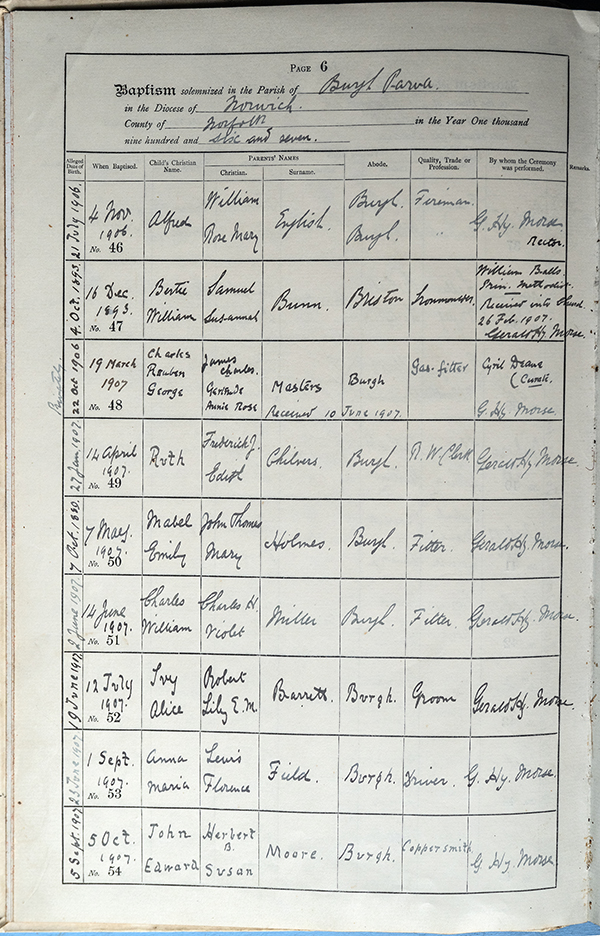 PAGE 6
Baptism solemnized in the Parish of Burgh Parva.
in the Diocese of Norwich.
County of Norfolk in the Year One thousand
nine hundred and six and seven.
Alleged Date of Birth. When Baptised. Child's Christian Name. PARENTS' NAMES Christian. Surname. Abode. Quality, Trade or Profession. By whom the Ceremony was performed. Remarks.
21 July 1906.
4 Nov. 1906.
No. 46
Alfred
William
Rose Mary
English.
Burgh.
Burgh.
Fireman.
G. Hy. Morse
Rector.
4. Oct. 1893.
16 Dec.
1893.
No. 47
Bertie
William
Samuel
Susannah
Bunn.
Briston
Ironmonger.
William Balls.
Prim. Methodist.
Received into Church
26 Feb. 1907.
Gerald Hy. Morse.
Privately.
22 Oct 1906
19 March
1907
No. 48
Charles
Reuben
George
James
Charles.
Gertrude
Annie Rose
Masters
Received 10 June 1907.
Burgh
Gas-fitter
Cyril Deane
(Curate.
G. Hy. Morse.
27 Jan. 1907.
14 April
1907.
No. 49
Ruth
Frederick J.
Edith
Chilvers.
Burgh.
R. W. Clerk
Gerald Hy. Morse.
7 Oct. 1880.
7 May.
1907.
No. 50
Mabel
Emily
John Thomas
Mary
Holmes.
Burgh.
Fitter.
Gerald Hy. Morse.
2 June 1907.
14 June
1907.
No. 51
Charles
William
Charles H.
Violet
Miller
Burgh.
Fitter.
Gerald Hy. Morse.
19 June 1907
12 July
1907.
No. 52
Ivy
Alice
Robert
Lily E. M.
Barrett.
Burgh.
Groom
Gerald Hy. Morse
23 June 1907
1 Sept.
1907.
No. 53
Anna
Maria
Lewis
Florence
Field.
Burgh.
Driver.
G. Hy. Morse.
5 Sept. 1907
5 Oct.
1907.
No. 54
John
Edward
Herbert
B.
Susan
Moore.
Burgh.
Coppersmith.
G. Hy. Morse